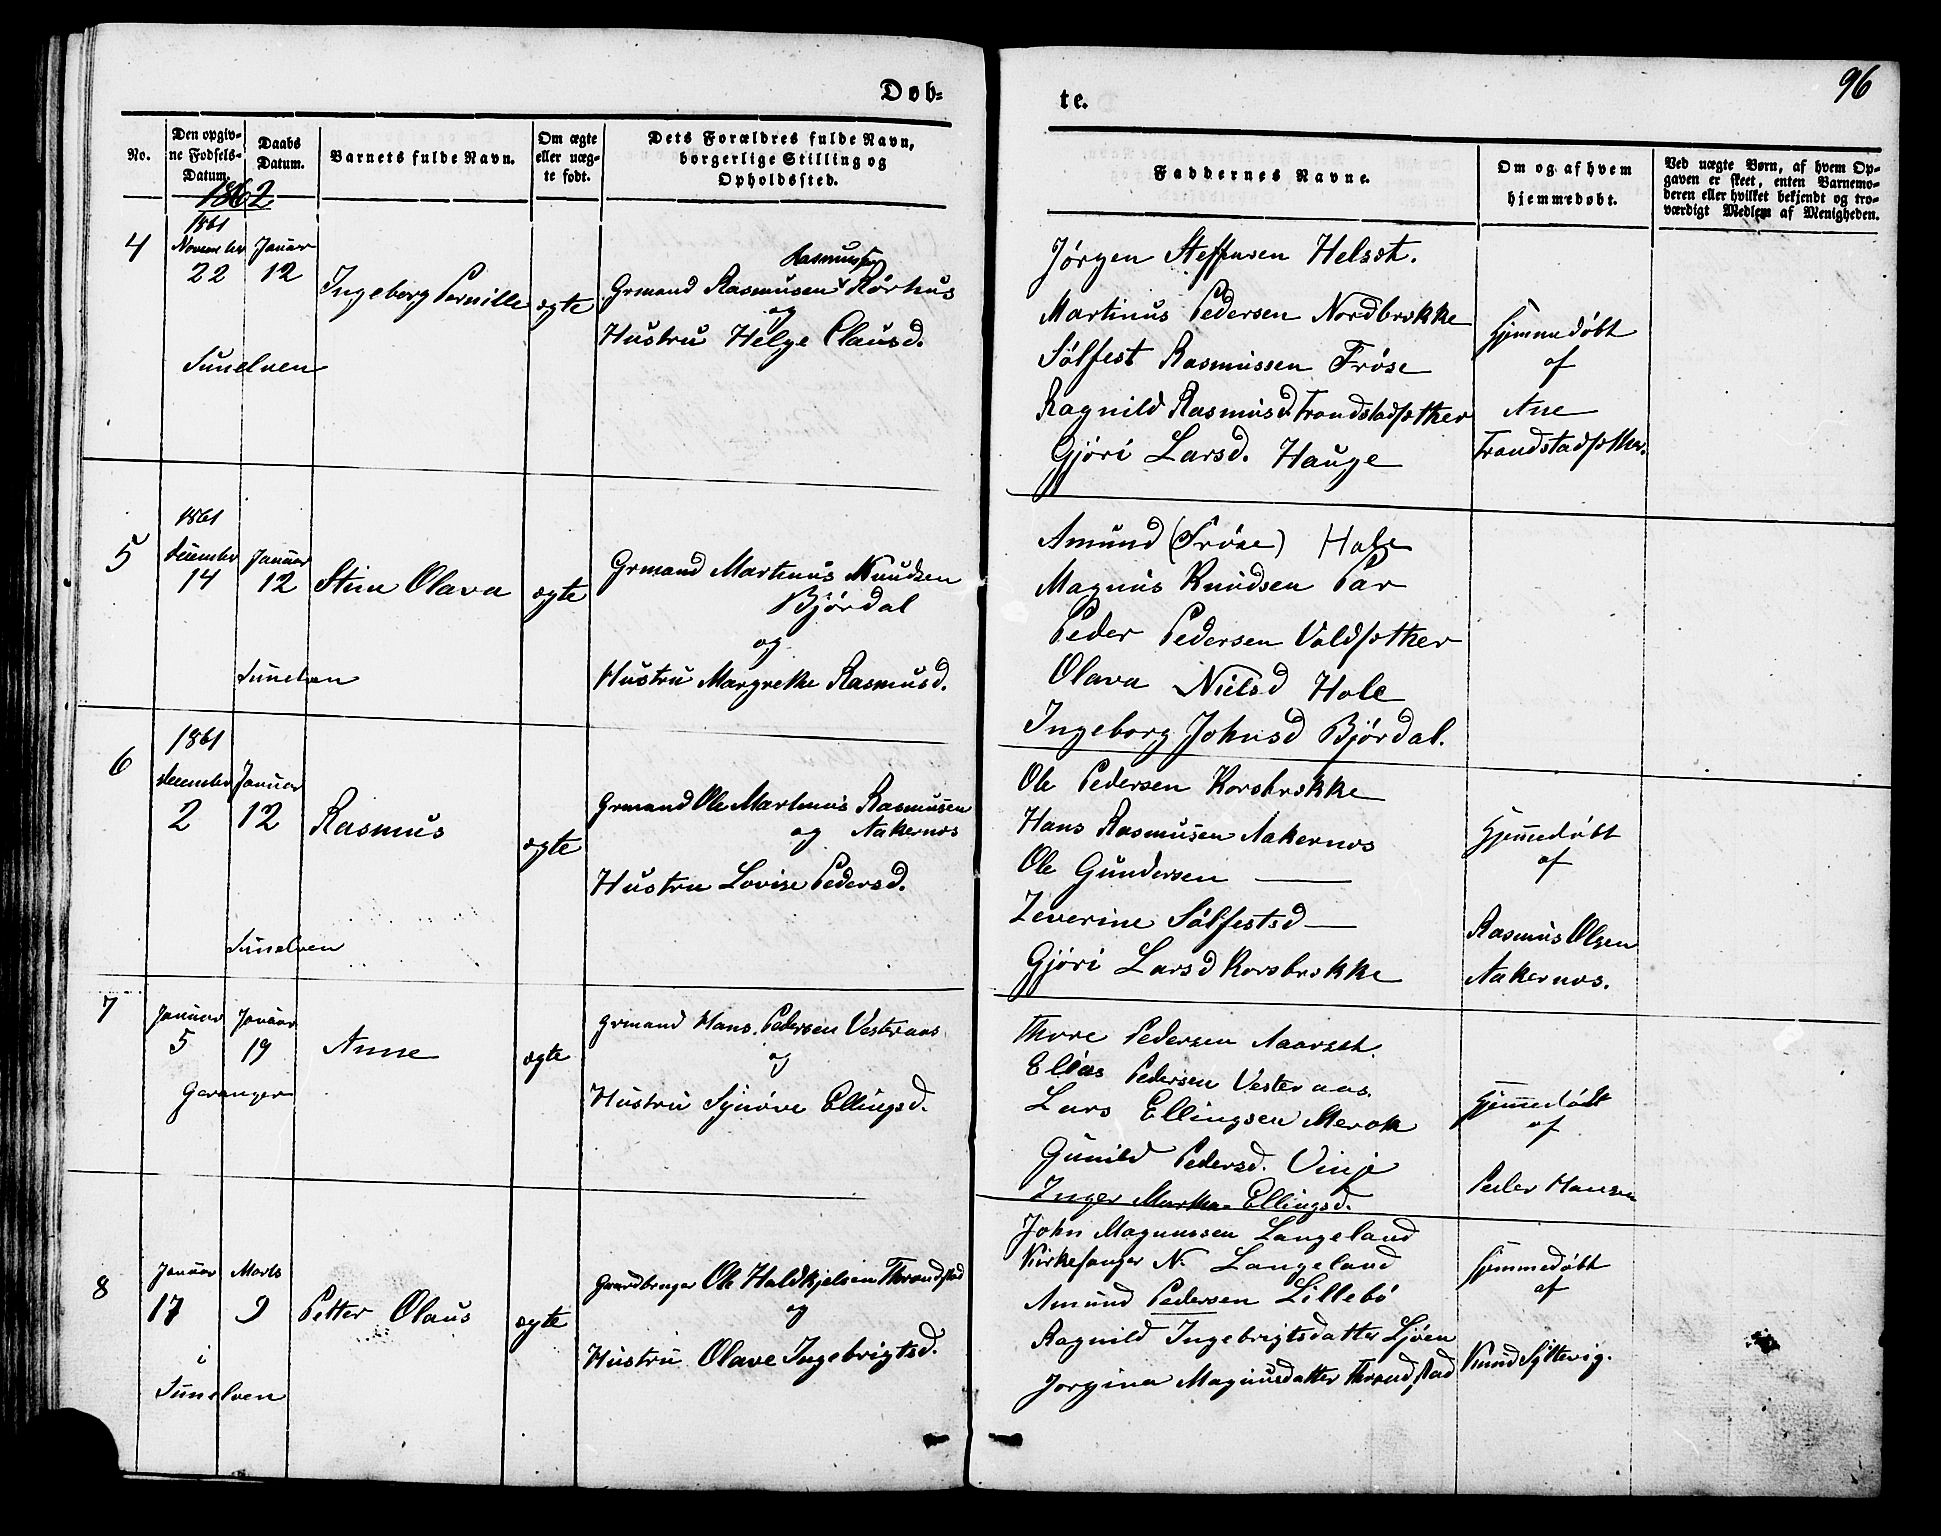 Døb-
te.
96
No.
Den opgiv-
ne Fødsels-
Datum.
Daabs
Datum.
Barnets fulde Navn.
Om ægte
eller uæg-
te født.
Dets Forældres fulde Navn,
borgerlige Stilling og
Opholdssted.
Faddernes Navne.
Om og af hvem
hjemmedøbt.
Ved uægte Børn, af hvem Op-
gaven er skeet, enten Barnemo-
deren eller hvilket bekjendt og tro-
værdigt Medlem af Menigheden.
1862
4
1861
November
22
Januar
12
Ingeborg Pernille
ægte
Rasmussen
Grmand Rasmusen Rørhus
og
Hustru Helge Clausd.
Sunelven
Jørgen Steffensen Helset.
Martinus Pedersen Nordbrekke
Sølfest Rasmussen Frøse
Ragnild Rasmusd. Trondstadsæther
Gjøri Larsd. Hauge
Hjemmedøbt
af
Ane
Trondstadsæther.
5
1861
December
14
Januar
12
Stine Olava
ægte
Grmand Martinus Knudsen
Bjørdal
og
Hustru Margrethe Rasmusd.
Sunelven
Amund (Frøse) Hole
Magnus Knudsen Par
Peder Pedersen Voldsæther
Olava Nielsd Hole
Ingeborg Johnsd Bjørdal.
6
1861
December
2
Januar
12
Rasmus
ægte
Grmand Ole Martinus Rasmusen
og Aakernes
Hustru Lovise Pedersd.
Sunelven
Ole Pedersen Korsbrekke
Hans Rasmusen Aakernes
Ole Gundersen —
Zeverine Sølfestsd —
Gjøri Larsd Korsbrekke
Hjemmedøbt
af
Rasmus Olsen
Aakernes.
7
Januar
5
Januar
19
Anne
ægte
Grmand Hans Pedersen Vesteraas
og
Hustru Synøve Ellingsd.
Geranger
Thore Pedersen Aarset.
Elias Pedersen Vesteraas.
Lars Ellingsen Merok
Gunild Pedersd. Vinje
Inger Martha Ellingsd.
Hjemmedøbt
af
Peder Hansen
8
Januar
17
Marts
9
Petter Olaus
ægte
Gaardbruger Ole Holdkjelsen Throndstad
og
Hustru Olave Ingebrigtsd.
i
Sunelven
John Magnussen Langeland
Kirkesanger N. Langeland
Amund Pedersen Lillebø
Ragnild Ingebrigtsdatter Ljøen
Jorgina Magnusdatter Throndstad
Hjemmedøbt
af
Knud Syltevig.